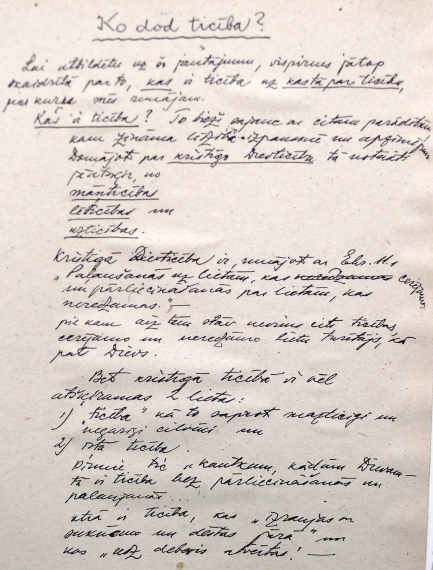 Ko dod ticība?
Lai atbildētu uz šo jautājumu, vispirms jātop
skaidrībā par to, kas ir ticība un kas tā par ticību,
par kuru mēs runājam.
Kas ir ticība? To bieži sajauc ar citām parādībām
kam zināma līdzība
Domājot par kristīgo Dievticību tā
jāšķir no
māņticības
lēticības un
uzticības.
Kristīgā Dievticība ir, runājot ar Ebr. 11.1
"Paļaušanās uz lietām, kas cerējamas,
un pārliecināšanās par lietām, kas
neredzamas."
pie kam aiz tām stāv mums cits
cerējamo un neredzamo lietu kā
pats Dievs.
Bet kristīgā ticībā ir vēl
atšķiramas 2 lietas:
1) "ticība" kā to saprot mazticīgi un
negarīgi cilvēki un
2) īstā ticība.
Pirmie tic "kautkam, kādam Dievam"
Tā ir ticība bez pārliecināšanās un
paļaušanās...
otrā ir ticība, kas "izraujas ar
saknēm un dēstās jūrā" un
kas "uz debesīs atvērtas! —